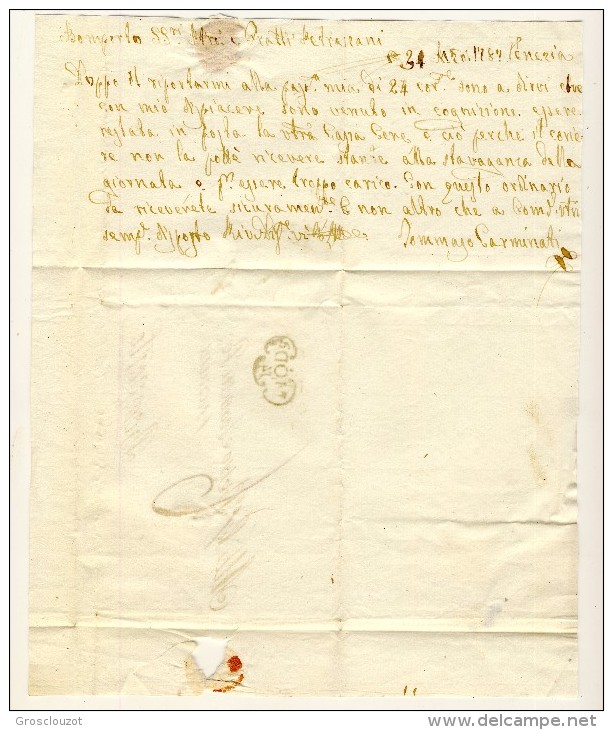 Bomporto SS.ri Atri e Fratlli Petrazzani
31 Mzo. 1787 Venezia
Doppo il riportarmi alla pas.a mia di 24 cor.e sono a dirvi che
con mio dispiacere sono venuto in cognizione essere
restata in posta la vtra Cassa Gene, e ciò perche il corie
re non la pottè ricevere stante alla stravaganza della
giornata e p. essere troppo carico. Con questo ordinario
la riceverete sicuramen.te E non altro che a Comdi vtri
semp.e disposto Rivdisf.
Tommaso Carminati
Grosclouzot
www.delcampe.net